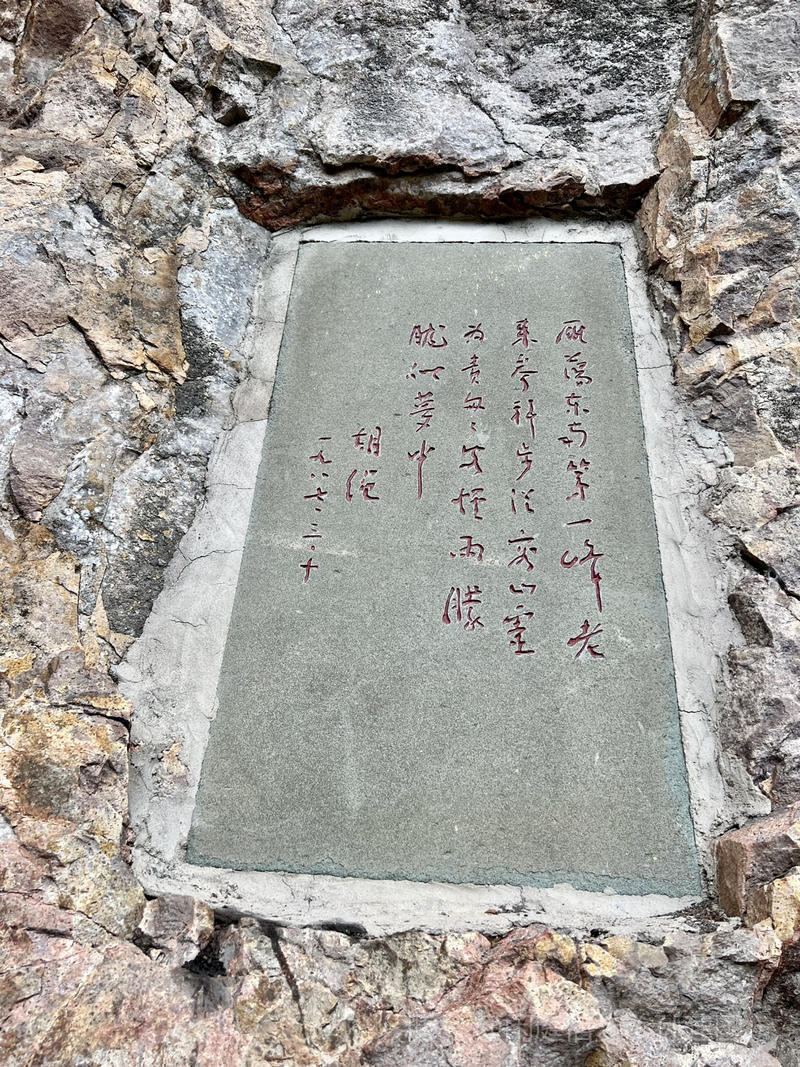 雁蕩东南第一峰老
来参拜步从容山靈
为责烟雨朦
胧似梦中
胡绳
一九八七·三·十